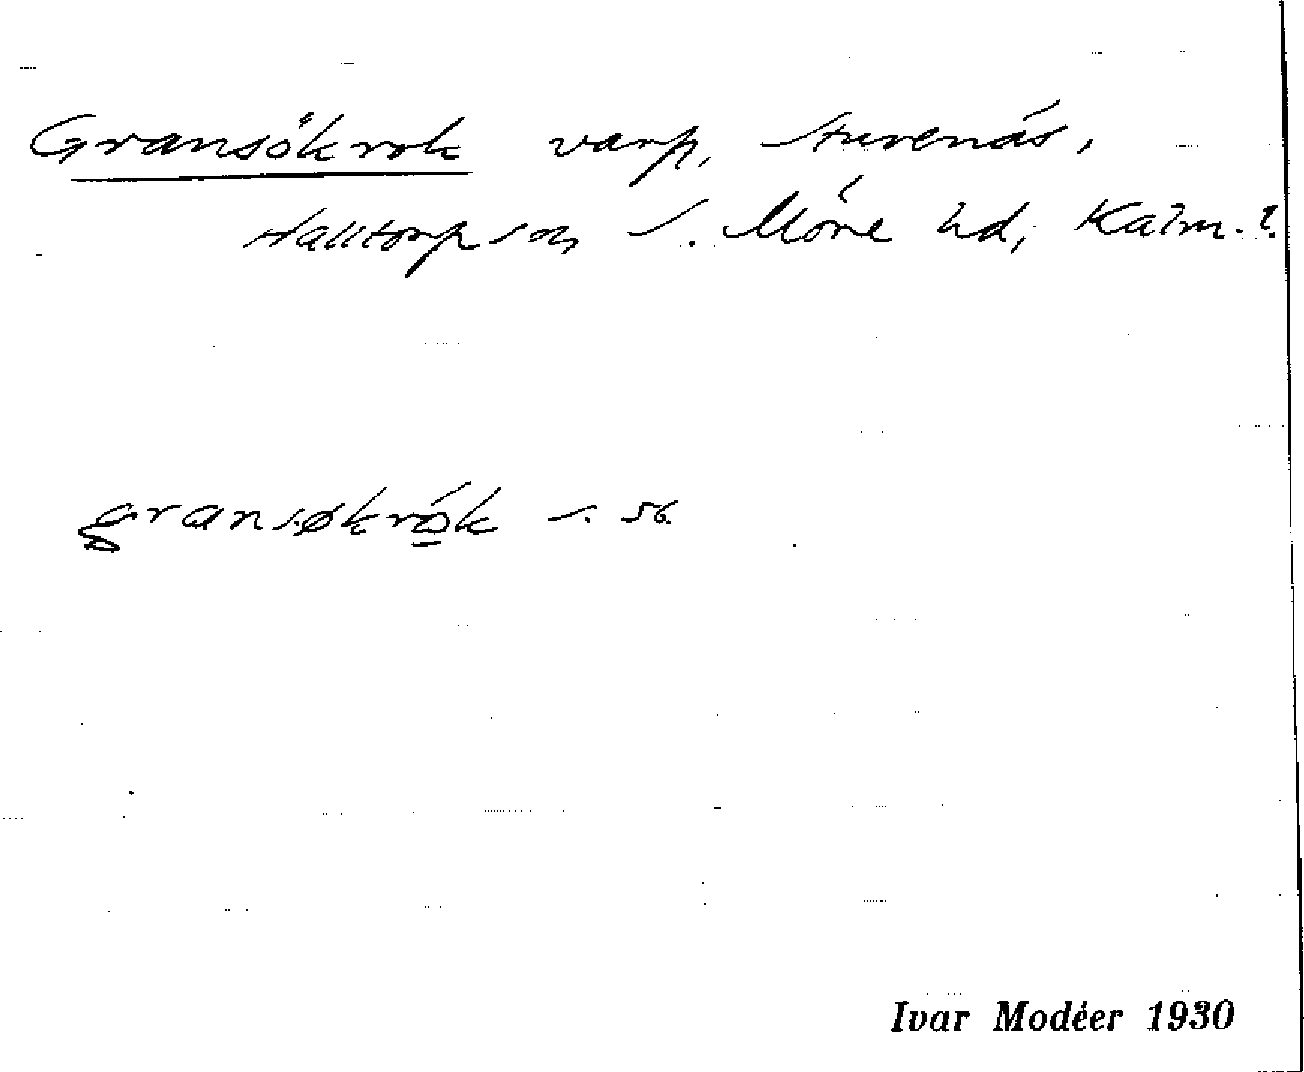 Gransökrok varp, Stuvenäs,
Halltorp sn, S. Möre hd, Kalm. l.
gransøkrók s. 56.
Ivar Modéer 1930